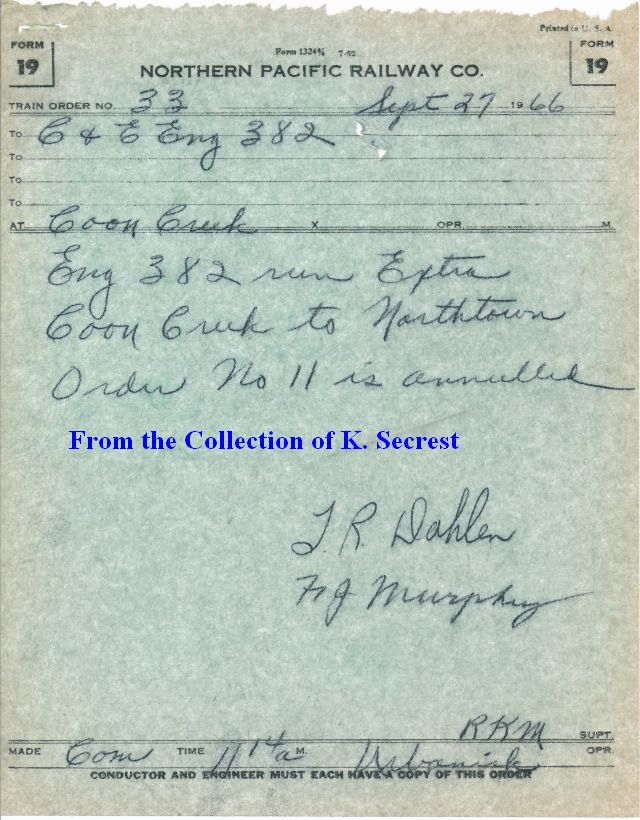 Printed in U. S. A.
FORM 19
Form 1324¾ 7-62
FORM 19
NORTHERN PACIFIC RAILWAY CO.
TRAIN ORDER NO. 33 Sept 27 1966
To C & E Eng 382
To
To
To
AT Coon Creek X OPR. M.
Eng 382 run Extra
Coon Creek to Northtown
Order No 11 is annulled
From the Collection of K. Secrest
T. R. Dahlen
F J Murphy
RKM SUPT.
MADE Com TIME 11 14a M. Urbaniak OPR.
CONDUCTOR AND ENGINEER MUST EACH HAVE A COPY OF THIS ORDER